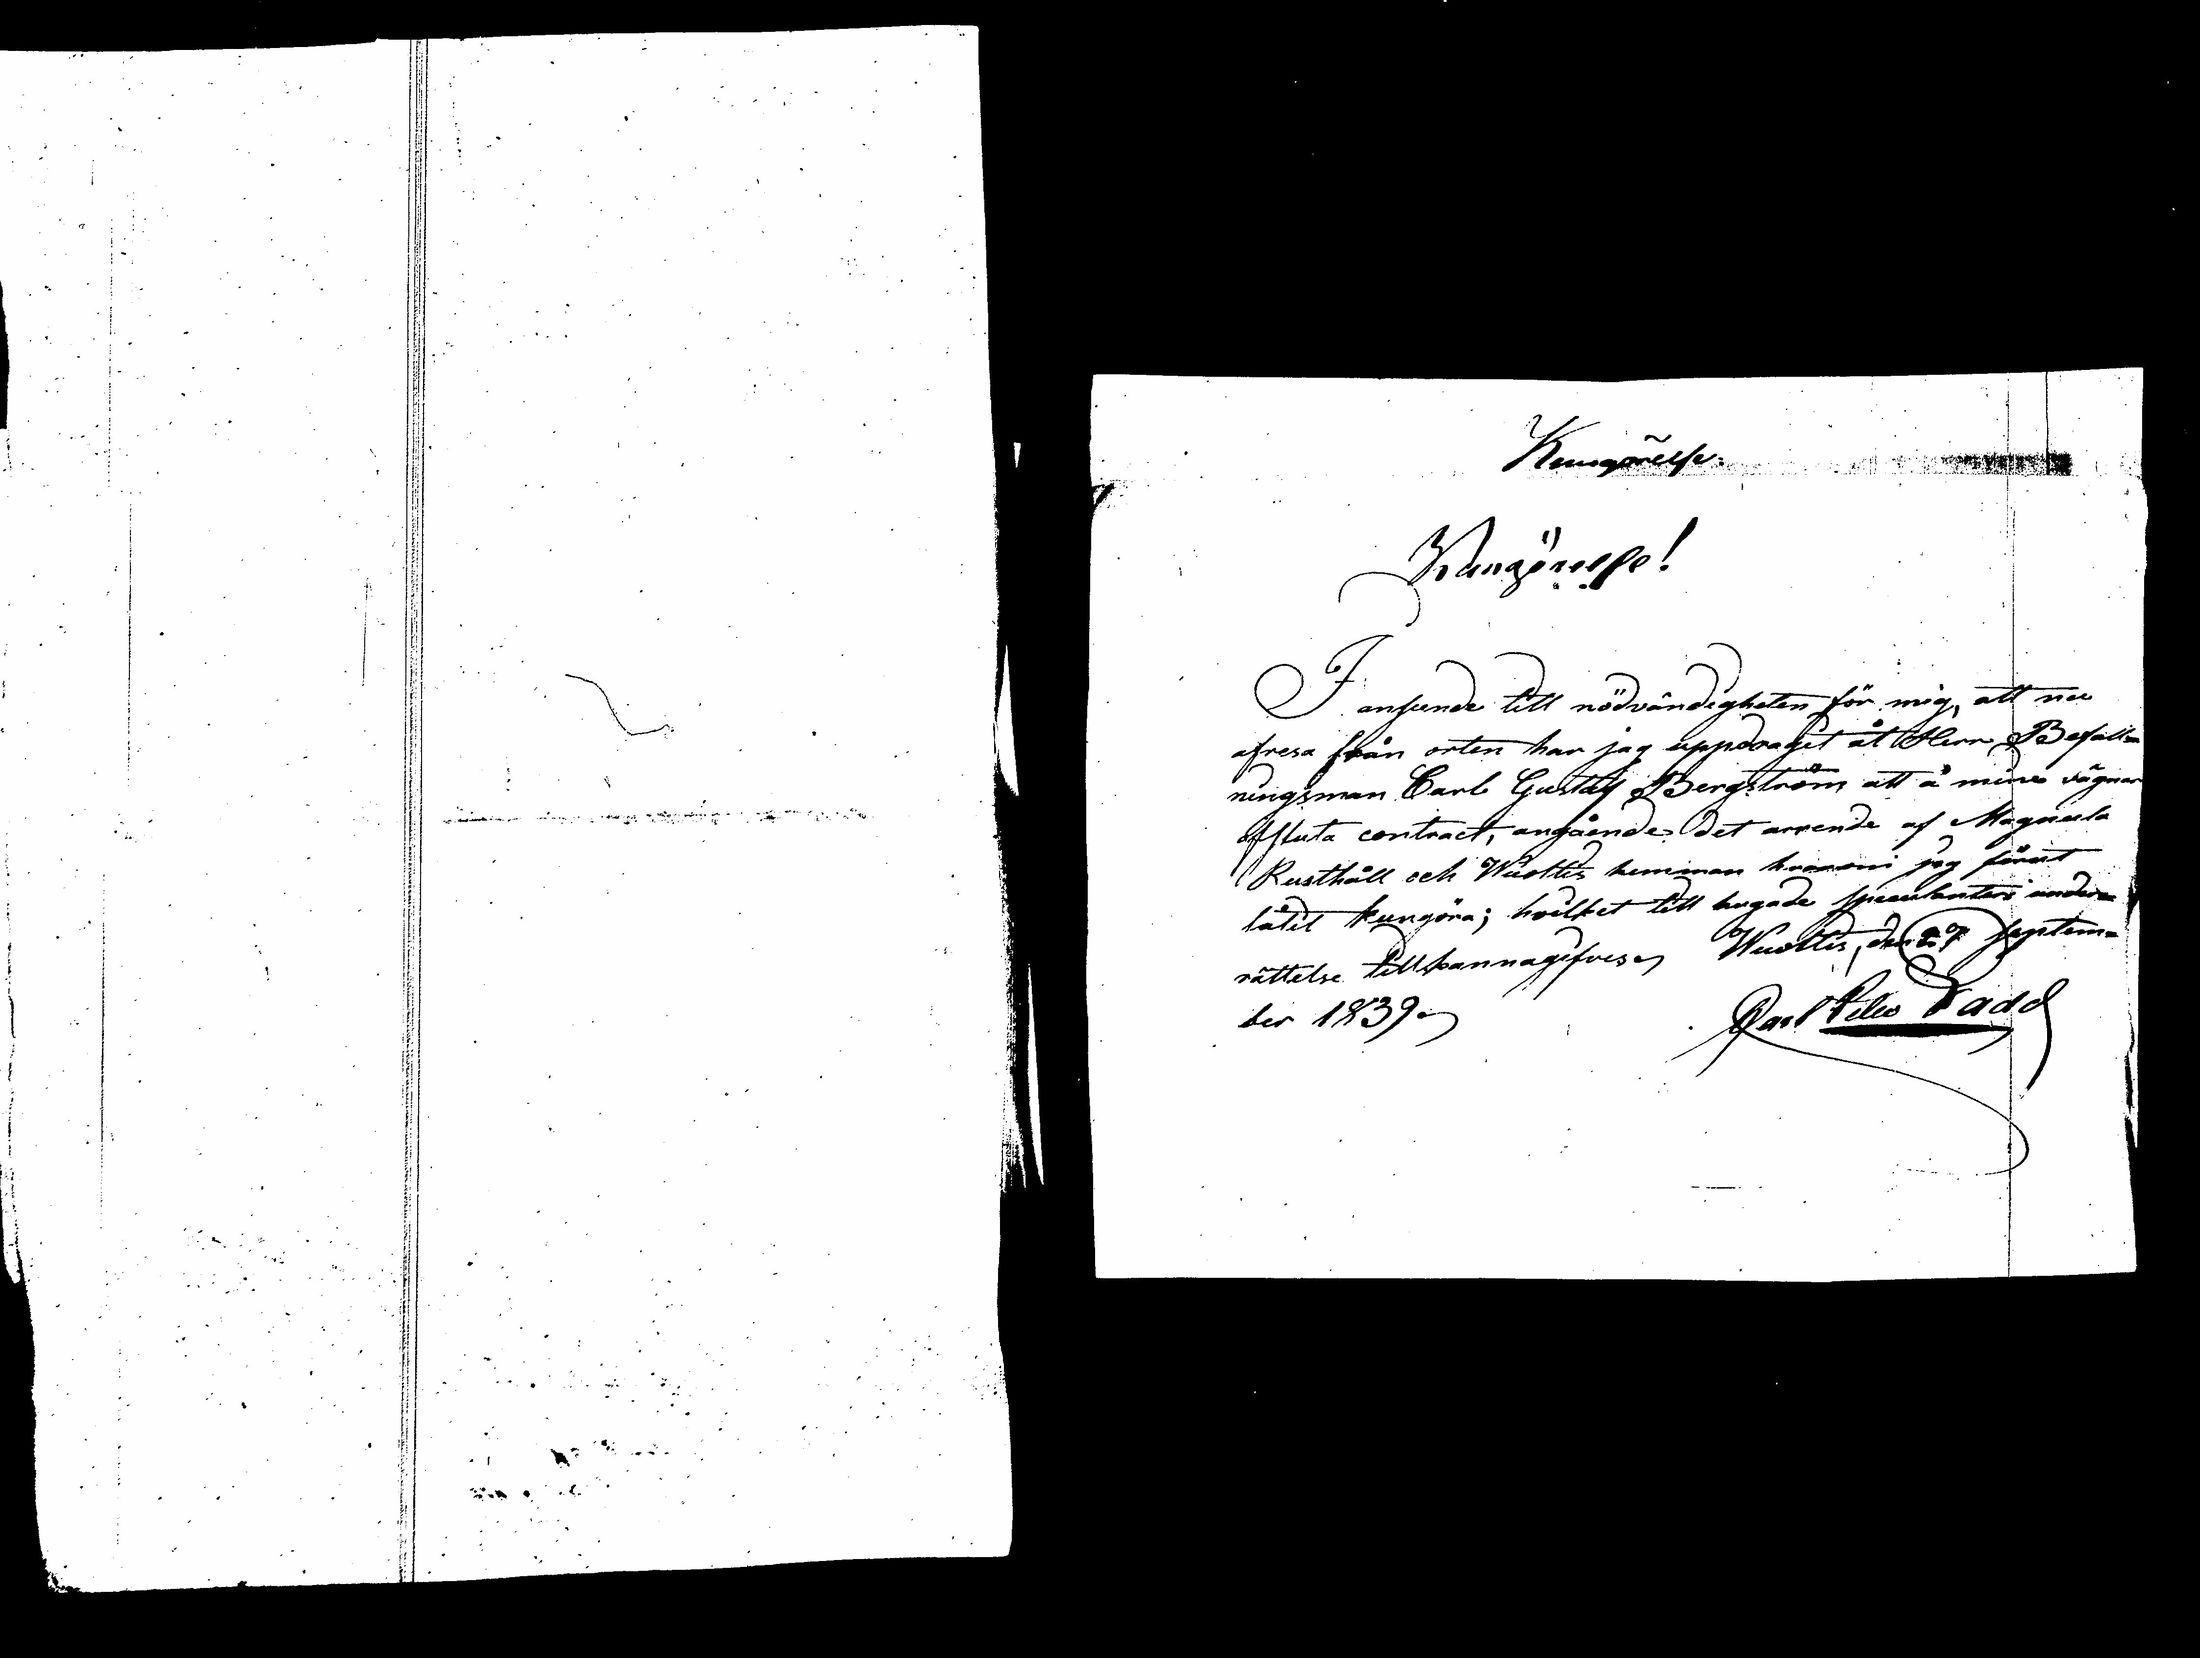 Kungörelse.
Kungörelse!
I anseende till nödvändigheten för mig, att nu
afresa från orten har jag uppdragit åt Herr Befall=
ningsman Carl Gustaf Bergström att å mina vägnar
afsluta contract, angående det arrende af Magnula
Rusthåll och Wuoltis hemman hvarom jag förut
låtit kungöra; hvilket till hugade speculanters under=
rättelse tillkännagifves. Wuoltis, den 27 septem=
ber 1839.
Carl Add